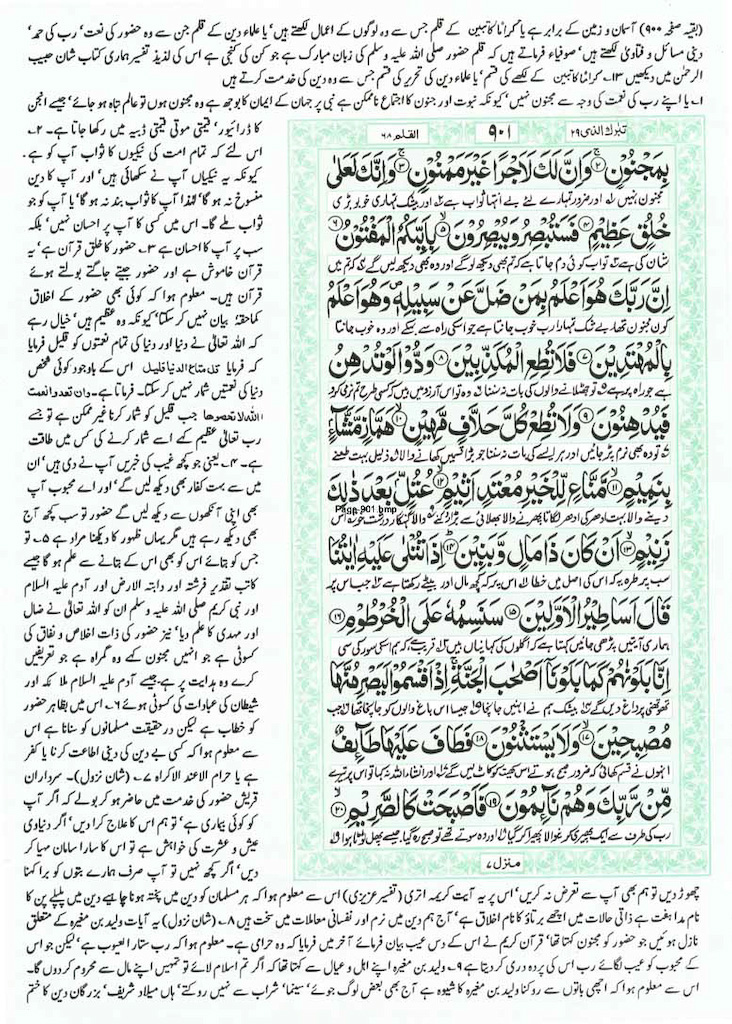 (بقیہ صفحہ ۹۰۰) آسمان و زمین کے برابر ہے یا کراماً کاتبین کے قلم جس سے وہ لوگوں کے اعمال لکھتے ہیں' یا علماء دین کے قلم جن سے وہ حضور کی نعت' رب کی حمد'
دینی مسائل و فتاویٰ لکھتے ہیں' صوفیاء فرماتے ہیں کہ قلم حضور صلی اللہ علیہ وسلم کی زبان مبارک ہے جو کن کی کنجی ہے اس کی لذیذ تفسیر ہماری کتاب شان حبیب
الرحمٰن میں دیکھیں ۱۳۔ کراماً کاتبین کے لکھے کی قسم' یا علماء دین کی تحریر کی قسم جس سے وہ دین کی خدمت کرتے ہیں
۱۔ یا اپنے رب کی نعمت کی وجہ سے مجنون نہیں' کیونکہ نبوت اور جنون کا اجتماع ناممکن ہے نبی پر جہان کے ایمان کا بوجھ ہے وہ مجنون ہوں تو عالم تباہ ہو جائے' جیسے انجن
تبارک الذی ۲۹
۹۰۱
القلم ۶۸
بِمَجْنُوْنٍ ۲ وَاِنَّ لَكَ لَاَجْرًا غَيْرَ مَمْنُوْنٍ ۳ وَاِنَّكَ لَعَلٰى
مجنون نہیں اور ضرور تمہارے لئے بے انتہا ثواب ہے اور بیشک تمہاری خو بو بڑی
خُلُقٍ عَظِيْمٍ ۴ فَسَتُبْصِرُ وَيُبْصِرُوْنَ ۵ بِاَيِّىكُمُ الْمَفْتُوْنُ ۶
شان کی ہے تو اب کوئی دم جاتا ہے کہ تم بھی دیکھ لو گے اور وہ بھی دیکھ لیں گے کہ تم میں
اِنَّ رَبَّكَ هُوَ اَعْلَمُ بِمَنْ ضَلَّ عَنْ سَبِيْلِهٖ وَهُوَ اَعْلَمُ
کون مجنون تھا بے شک تمہارا رب خوب جانتا ہے جو اسکی راہ سے بہکے اور وہ خوب جانتا
بِالْمُهْتَدِيْنَ ۷ فَلَا تُطِعِ الْمُكَذِّبِيْنَ ۸ وَدُّوْا لَوْ تُدْهِنُ
ہے جو راہ پر ہے تو جھٹلانے والوں کی بات نہ سننا وہ تو اس آرزو میں ہیں کہ کسی طرح تم نرمی کرو
فَيُدْهِنُوْنَ ۹ وَلَا تُطِعْ كُلَّ حَلَّافٍ مَّهِيْنٍ ۱۰ هَمَّازٍ مَّشَّآءٍ
تو وہ بھی نرم پڑ جائیں اور ہر ایسے کی بات نہ سننا جو بڑا قسمیں کھانے والا ذلیل بہت طعنے
بِنَمِيْمٍ ۱۱ مَّنَّاعٍ لِّلْخَيْرِ مُعْتَدٍ اَثِيْمٍ ۱۲ عُتُلٍّ بَعْدَ ذٰلِكَ
Page-901.bmp
دینے والا بہت ادھر کی ادھر لگاتا پھرنے والا بھلائی سے بڑا روکنے والا گنہگار درشت خو اس
زَنِيْمٍ ۱۳ اَنْ كَانَ ذَا مَالٍ وَّبَنِيْنَ ۱۴ اِذَا تُتْلٰى عَلَيْهِ اٰيٰتُنَا
سب پر طرہ یہ کہ اس کی اصل میں خطا اس پر کہ کچھ مال اور بیٹے رکھتا ہے جب اس پر
قَالَ اَسَاطِيْرُ الْاَوَّلِيْنَ ۱۵ سَنَسِمُهٗ عَلَى الْخُرْطُوْمِ ۱۶
ہماری آیتیں پڑھی جائیں کہتا ہے کہ اگلوں کی کہانیاں ہیں قریب ہے کہ ہم اسکی سور کی سی
اِنَّا بَلَوْنٰهُمْ كَمَا بَلَوْنَآ اَصْحٰبَ الْجَنَّةِ ۚ اِذْ اَقْسَمُوْا لَيَصْرِمُنَّهَا
تھوتھنی پر داغ دیں گے بیشک ہم نے انہیں جانچا جیسا اس باغ والوں کو جانچا تھا جب
مُصْبِحِيْنَ ۱۷ وَلَا يَسْتَثْنُوْنَ ۱۸ فَطَافَ عَلَيْهَا طَآئِفٌ
انہوں نے قسم کھائی کہ ضرور صبح ہوتے اس کھیت کو کاٹ لیں گے اور انشاء اللہ نہ کہا تو اس پر تیرے
مِّنْ رَّبِّكَ وَهُمْ نَآئِمُوْنَ ۱۹ فَاَصْبَحَتْ كَالصَّرِيْمِ ۲۰
رب کی طرف سے ایک پھیری کرنے والا پھیرا کر گیا اور وہ سوتے تھے تو صبح رہ گیا جیسے پھل ٹوٹا ہوا
منزل ۷
کا ڈرائیور' قیمتی موتی قیمتی ڈبیہ میں رکھا جاتا ہے۔ ۲۔
اس لئے کہ تمام امت کی نیکیوں کا ثواب آپ کو ہے۔
کیونکہ یہ نیکیاں آپ نے سکھائی ہیں' اور آپ کا دین
منسوخ نہ ہو گا' لہٰذا آپ کا ثواب بند نہ ہو گا' یا آپ کو جو
ثواب ملے گا۔ اس میں کسی کا آپ پر احسان نہیں' بلکہ
سب پر آپ کا احسان ہے ۳۔ حضور کا خلق قرآن ہے' یہ
قرآن خاموش ہے اور حضور جیتے جاگتے بولتے ہوئے
قرآن ہیں۔ معلوم ہوا کہ کوئی بھی حضور کے اخلاق
کماحقہٗ بیان نہیں کر سکتا' کیونکہ وہ عظیم ہیں' خیال رہے
کہ اللہ تعالٰی نے دنیا اور دنیا کی تمام نعمتوں کو قلیل فرمایا
کہ فرمایا قل متاع الدنیا قلیل اس کے باوجود کوئی شخص
دنیا کی نعمتیں شمار نہیں کر سکتا۔ فرماتا ہے۔ وان تعدوا نعمت
اللہ لا تحصوھا جب قلیل کو شمار کرنا غیر ممکن ہے تو جسے
رب تعالٰی عظیم کے اسے شمار کرنے کی کس میں طاقت
ہے۔ ۴۔ یعنی جو کچھ غیب کی خبریں آپ نے دی ہیں' ان
میں سے بہت کفار بھی دیکھ لیں گے' اور اے محبوب آپ
بھی اپنی آنکھوں سے دیکھ لیں گے حضور تو سب کچھ آج
بھی دیکھ رہے ہیں مگر یہاں ظہور کا دیکھنا مراد ہے ۵۔ تو
جس کو بتائے اس کو بھی اس کے بتانے سے علم ہو گا جیسے
کاتب تقدیر فرشتہ اور دابتہ الارض اور آدم علیہ السلام
اور نبی کریم صلی اللہ علیہ وسلم ان کو اللہ تعالٰی نے ضال
اور مہدی کا علم دیا' نیز حضور کی ذات اخلاص و نفاق کی
کسوٹی ہے جو انہیں مجنون کے وہ گمراہ ہے جو تعریفیں
کرے وہ ہدایت پر ہے' جیسے آدم علیہ السلام ملا ئکہ اور
شیطان کی عبادات کی کسوٹی ہوئے ۶۔ اس میں بظاہر حضور
کو خطاب ہے لیکن درحقیقت مسلمانوں کو سنانا ہے اس
سے معلوم ہوا کہ کسی بے دین کی دینی اطاعت کرنا یا کفر
ہے یا حرام الا عند الاکراہ ۷۔ (شان نزول)۔ سرداران
قریش حضور کی خدمت میں حاضر ہو کر بولے کہ اگر آپ
کو کوئی بیماری ہے' تو ہم اس کا علاج کرا دیں' اگر دنیاوی
عیش و عشرت کی خواہش ہے تو اس کا سارا سامان مہیا کر
دیں' اگر کچھ نہیں تو آپ صرف ہمارے بتوں کو برا کہنا
چھوڑ دیں تو ہم بھی آپ سے تعرض نہ کریں' اس پر یہ آیت کریمہ اتری (تفسیر عزیزی) اس سے معلوم ہوا کہ ہر مسلمان کو دین میں پختہ ہونا چاہیے دین میں پلپلے پن کا
نام مداہنت ہے ذاتی حالات میں اچھے برتاؤ کا نام اخلاق ہے' آج ہم دین میں نرم اور نفسانی معاملات میں سخت ہیں ۸۔ (شان نزول) یہ آیات ولید بن مغیرہ کے متعلق
نازل ہوئیں جو حضور کو مجنون کہتا تھا' قرآن کریم نے اس کے دس عیب بیان فرمائے آخر میں فرمایا کہ وہ حرامی ہے۔ معلوم ہوا کہ رب ستار العیوب ہے' لیکن جو اس
کے محبوب کو عیب لگائے رب اس کی پردہ دری کر دیتا ہے ۹۔ ولید بن مغیرہ اپنے اہل و عیال سے کہتا تھا کہ اگر تم اسلام لائے تو تمہیں اپنے مال سے محروم کر دوں گا۔
اس سے معلوم ہوا کہ اچھی باتوں سے روکنا ولید بن مغیرہ کا شیوہ ہے آج بھی بعض لوگ جوئے' سینما' شراب سے نہیں روکتے' ہاں میلاد شریف' بزرگان دین کا ختم